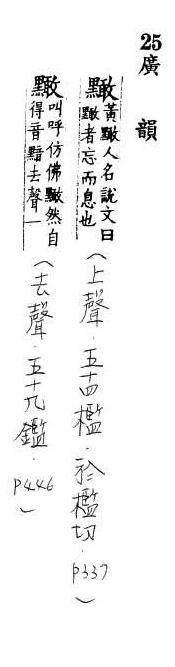 25廣韻
𪒠黃𪒠人名說文曰𪒠者忘而息也(上聲.五十四檻.於檻切.p337)
𪒠叫呼仿佛𪒠然自得音黯去聲一(去聲.五十九鑑.p446)